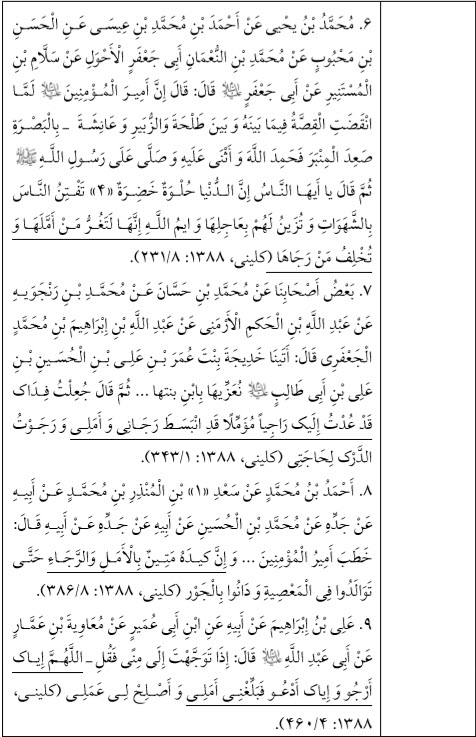 ۶. مُحَمَّدُ بْنُ یحْیی عَنْ أَحْمَدَ بْنِ مُحَمَّدِ بْنِ عِیسَی عَنِ الْحَسَنِ
بْنِ مَحْبُوبٍ عَنْ مُحَمَّدِ بْنِ النُّعْمَانِ أَبِی جَعْفَرٍ الْأَحْوَلِ عَنْ سَلَّامِ بْنِ
الْمُسْتَنِیرِ عَنْ أَبِی جَعْفَرٍ ﷷ قَالَ: قَالَ إِنَّ أَمِیرَ الْمُؤْمِنِینَ ﷷ لَمَّا
انْقَضَتِ الْقِصَّةُ فِیمَا بَینَهُ وَ بَینَ طَلْحَةَ وَالزُّبَیرِ وَ عَائِشَةَ ـ بِالْبَصْرَةِ
صَعِدَ الْمِنْبَرَ فَحَمِدَ اللَّهَ وَ أَثْنَی عَلَیهِ وَ صَلَّی عَلَی رَسُولِ اللَّهِ ﷺ
ثُمَّ قَالَ یا أَیهَا النَّاسُ إِنَّ الدُّنْیا حُلْوَةٌ خَضِرَةٌ «۴» تَفْتِنُ النَّاسَ
بِالشَّهَوَاتِ وَ تُزَینُ لَهُمْ بِعَاجِلِهَا وَ ایمُ اللَّهِ إِنَّهَا لَتَغُرُّ مَنْ أَمَّلَهَا وَ
تُخْلِفُ مَنْ رَجَاهَا (کلینی، ۱۳۸۸: ۲۳۱/۸).
۷. بَعْضُ أَصْحَابِنَا عَنْ مُحَمَّدِ بْنِ حَسَّانَ عَنْ مُحَمَّدِ بْنِ رَنْجَوَیهِ
عَنْ عَبْدِ اللَّهِ بْنِ الْحَکمِ الْأَرْمَنِی عَنْ عَبْدِ اللَّهِ بْنِ إِبْرَاهِیمَ بْنِ مُحَمَّدٍ
الْجَعْفَرِی قَالَ: أَتَینَا خَدِیجَةَ بِنْتَ عُمَرَ بْنِ عَلِی بْنِ الْحُسَینِ بْنِ
عَلِی بْنِ أَبِی طَالِبٍ ﷷ نُعَزِّیهَا بِابْنِ بنتها ... ثُمَّ قَالَ جُعِلْتُ فِدَاک
قَدْ عُدْتُ إِلَیک رَاجِیاً مُؤَمِّلًا قَدِ انْبَسَطَ رَجَائِی وَ أَمَلِی وَ رَجَوْتُ
الدَّرْک لِحَاجَتِی (کلینی، ۱۳۸۸: ۳۴۳/۱).
۸. أَحْمَدُ بْنُ مُحَمَّدٍ عَنْ سَعْدِ «۱» بْنِ الْمُنْذِرِ بْنِ مُحَمَّدٍ عَنْ أَبِیهِ
عَنْ جَدِّهِ عَنْ مُحَمَّدِ بْنِ الْحُسَینِ عَنْ أَبِیهِ عَنْ جَدِّهِ عَنْ أَبِیهِ قَالَ:
خَطَبَ أَمِیرُ الْمُؤْمِنِینَ ... وَ إِنَّ کیدَهُ مَتِینٌ بِالْأَمَلِ وَالرَّجَاءِ حَتَّی
تَوَالَدُوا فِی الْمَعْصِیةِ وَ دَانُوا بِالْجَوْرِ (کلینی، ۱۳۸۸: ۳۸۶/۸).
۹. عَلِی بْنُ إِبْرَاهِیمَ عَنْ أَبِیهِ عَنِ ابْنِ أَبِی عُمَیرٍ عَنْ مُعَاوِیةَ بْنِ عَمَّارٍ
عَنْ أَبِی عَبْدِ اللَّهِ ﷷ قَالَ: إِذَا تَوَجَّهْتَ إِلَی مِنًی فَقُلِ ـ اللَّهُمَّ إِیاک
أَرْجُو وَ إِیاک أَدْعُو فَبَلِّغْنِی أَمَلِی وَ أَصْلِحْ لِی عَمَلِی (کلینی،
۱۳۸۸: ۴۶۰/۴).